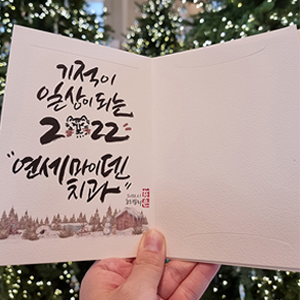 기적이
일상이 되는
2022
"연세마이덴
치과"